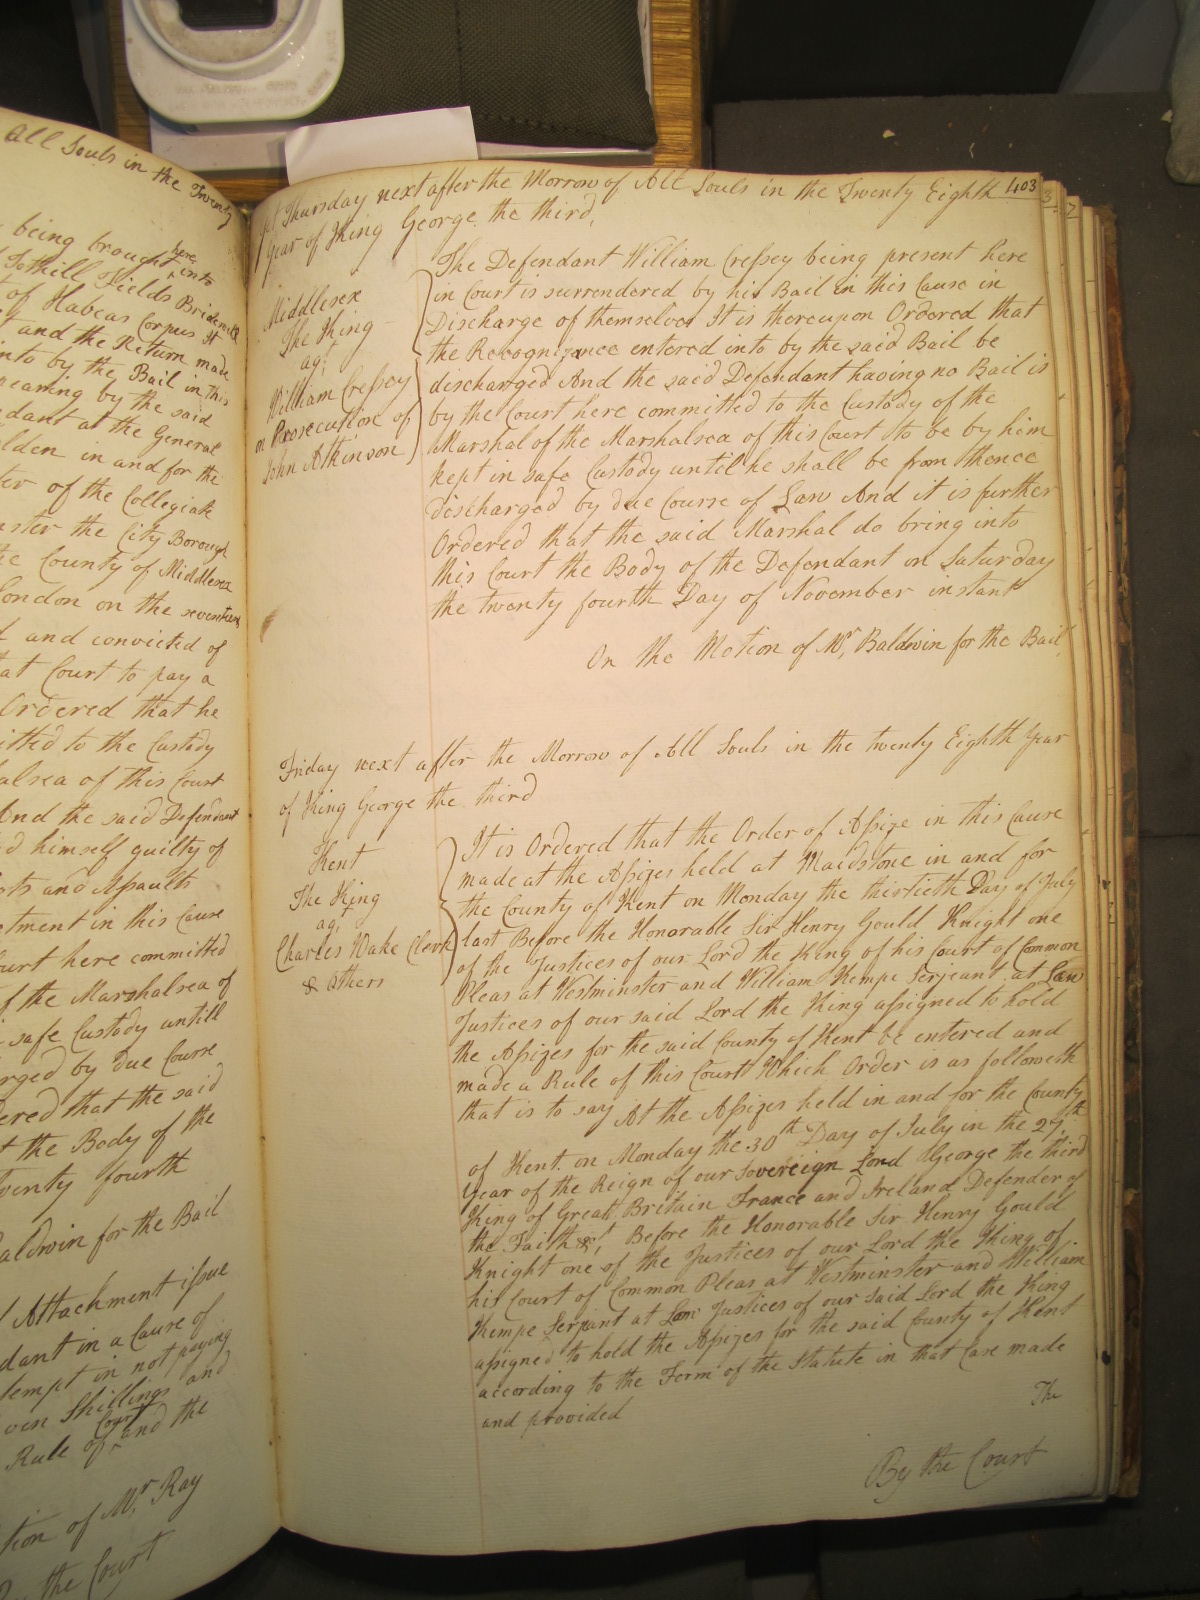 All Souls in the Twenty
being brought here into
Tothill Fields Bridewell
of Habeas Corpus It
and the Return made
into by the Bail in this
by the said
dant at the General
lden in and for the
ter of the Collegiate
nster the City Borough
he County of Middlesex
London on the seventeen
and convicted of
at Court to pay a
Ordered that he
itted to the Custody
alsea of this Court
And the said Defendant
d himself guilty of
ots and Assaults
ctment in this Cause
ourt here committed
f the Marshalsea of
safe Custody untill
rged by due Course
ered that the said
t the Body of the
wenty fourth
aldwin for the Bail
Attachment issue
dant in a Cause of
tempt in not paying
ven Shillings and
Rule of Court and the
tion of Mr. Ray
the Court
403
Thursday next after the Morrow of All Souls in the Twenty Eighth
Year of King George the third,
Middlesex
The King
agt
William Cressey
on Prosecution of
John Atkinson
The Defendant William Cressey being present here
in Court is surrendered by his Bail in this Cause in
Discharge of themselves It is thereupon Ordered that
the Recognizance entered into by the said Bail be
discharged And the said Defendant having no Bail is
by the Court here committed to the Custody of the
Marshal of the Marshalsea of this Court to be by him
kept in safe Custody until he shall be from thence
discharged by due Course of Law And it is further
Ordered that the said Marshal do bring into
this Court the Body of the Defendant on Saturday
the twenty fourth Day of November instant
On the Motion of Mr. Baldwin for the Bail
Friday next after the Morrow of All Souls in the twenty Eighth Year
of King George the third
Kent
The King
agt
Charles Wake Clerk
& Others
It is Ordered that the Order of Assize in this Cause
made at the Assizes held at Maidstone in and for
the County of Kent on Monday the thirtieth Day of July
last Before the Honorable Sir Henry Gould Knight one
of the Justices of our Lord the King of his Court of Common
Pleas at Westminster and William Kempe Serjeant at Law
Justices of our said Lord the King assigned to hold
the Assizes for the said County of Kent be entered and
made a Rule of this Court Which Order is as followeth
that is to say At the Assizes held in and for the County
of Kent on Monday the 30th Day of July in the 27th
Year of the Reign of our Sovereign Lord George the third
King of Great Britain France and Ireland Defender of
the Faith &c, Before the Honorable Sir Henry Gould
Knight one of the Justices of our Lord the King of
his Court of Common Pleas at Westminster and William
Kempe Serjeant at Law Justices of our Said Lord the King
assigned to hold the Assizes for the said County of Kent
according to the Form of the Statute in that Case made
and provided
The
By the Court